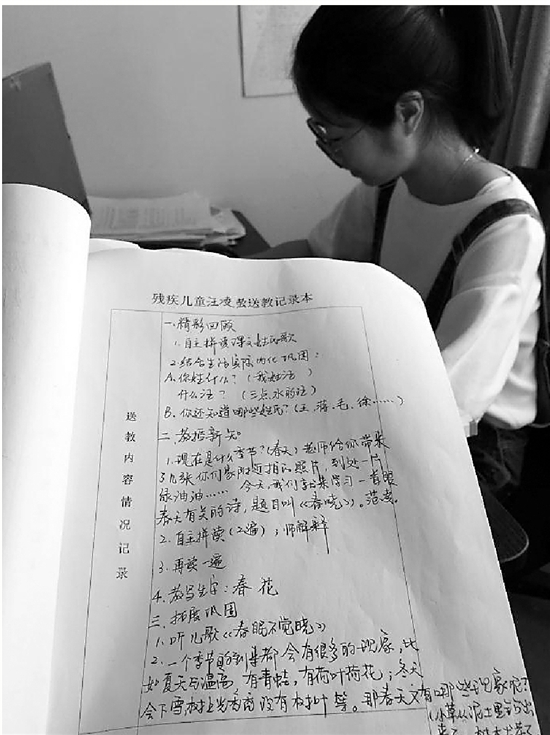 残疾儿童汪凌敖送教记录本
送教内容情况记录
一、精彩回顾
1. 自主拼读课文姓氏歌
2. 结合生活实际内化巩固:
A. 你姓什么? (我姓汪)
什么汪? (三点水的汪)
B. 你还知道哪些姓氏? (王、蒋、毛、徐……)
二、教授新知
1. 现在是什么季节? (春天) 老师给你带来
了几张你们家附近拍的照片, 到处一片
绿油油…… 今天, 我们就来学习一首跟
春天有关的诗, 题目叫《春晓》。范读。
2. 自主拼读 (2遍); 师解释
3. 再读一遍
4. 教写生字: 春 花
三、拓展巩固
1. 听儿歌《春眠不觉晓》
2. 一个季节的到来都会有很多的现象, 比
如夏天 高, 有青蛙, 有荷叶荷花; 冬天
会下雪, 树上光秃秃 没有树叶等。那春天又有哪些现象呢?
(小草从泥土里钻出
来了